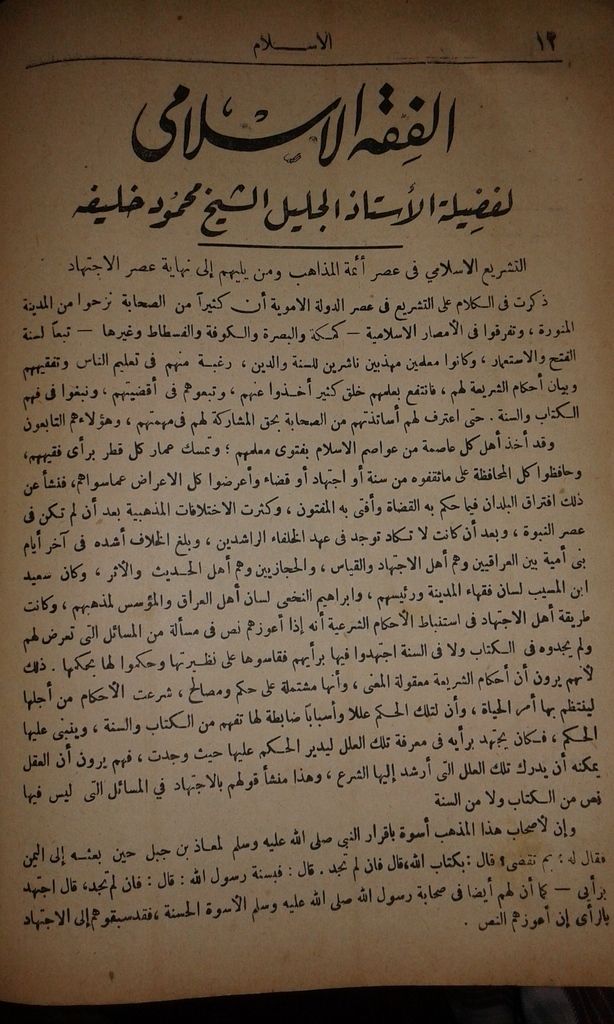 ١٢
الاســـلام
الفقه الاسلامى
لفضيلة الأستاذ الجليل الشيخ محمود خليفه
التشريع الاسلامي فى عصر أئمة المذاهب ومن يليهم إلى نهاية عصر الاجتهاد
ذكرت فى الكلام على التشريع فى عصر الدولة الاموية أن كثيرآ من الصحابة نزحوا من المدينة
المنورة ، وتفرقوا فى الأمصار الاسلامية – كمكة والبصرة والكوفة والفسطاط وغيرها – تبعاً لسنة
الفتح والاستعمار ، وكانوا معلمين مهذبين ناشرين للسنة والدين ، رغبة منهم فى تعليم الناس وتفقيههم
وبيان أحكام الشريعة لهم ، فانتفع بعلمهم خلق كثير أخذوا عنهم ، وتبعوهم فى أقضيتهم ، ونبغوا فى فهم
الكتاب والسنة . حتى اعترف لهم أساتذتهم من الصحابة بحق المشاركة لهم فى مهمتهم ، وهؤلاء هم التابعون
وقد أخذ أهل كل عاصمة من عواصم الاسلام بفتوى معلمهم ؛ وتمسك عمار كل قطر برأى فقيههم،
وحافظوا كل المحافظة على ماتلقفوه من سنة أو اجتهاد أو قضاء وأعرضوا كل الاعراض عماسواهم، فنشأ عن
ذلك افتراق البلدان فيما حكم به القضاة وأفتى به المفتون ، وكثرت الاختلافات المذهبية بعد أن لم تكن فى
عصر النبوة ، وبعد أن كانت لا تكاد توجد فى عهد الخلفاء الراشدين ، وبلغ الخلاف أشده فى آخر أيام
بنى أمية بين العراقيين وهم أهل الاجتهاد والقياس ، والحجازيين وهم أهل الحديث والأثر ، وكان سعيد
ابن المسيب لسان فقهاء المدينة ورئيسهم ، وابراهيم النخعى لسان أهل العراق والمؤسس لمذهبهم ، وكانت
طريقة أهل الاجتهاد فى استنباط الأحكام الشرعية أنه إذا أعوزهم نص فى مسألة من المسائل التى تعرض لهم
ولم يجدوه فى الكتاب ولا فى السنة اجتهدوا فيها برأيهم فقاسوها على نظيرتها وحكموا لها بحكمها . ذلك
لأنهم يرون أن أحكام الشريعة معقولة المعنى ، وأنها مشتملة على حكم ومصالح ، شرعت الأحكام من أجلها
لينتظم بها أمر الحياة ، وأن لتلك الحكم عللا وأسباباً ضابطة لها تفهم من الكتاب والسنة ، وينبنى عليها
الحكم ، فكان يجتهد برأيه فى معرفة تلك العلل ليدير الحكم عليها حيث وجدت ، فهم يرون أن العقل
يمكنه أن يدرك تلك العلل التى أرشد إليها الشرع ، وهذا منشأ قولهم بالاجتهاد في المسائل التى ليس فيها
نص من الكتاب ولا من السنة
وإن لأصحاب هذا المذهب أسوة باقرار النبي صلى الله عليه وسلم لمعاذ بن جبل حين بعثه إلى اليمن
فقال له : بم تقضى؟ قال : بكتاب الله، قال فان لم تجد . قال : فبسنة رسول الله : قال : فان لم تجد، قال اجتهد
برأيى – كما أن لهم أيضا فى صحابة رسول الله صلى الله عليه وسلم الأسوة الحسنة ، فقدسبقوهم إلى الاجتهاد
بالرأى إن أعوزهم النص .